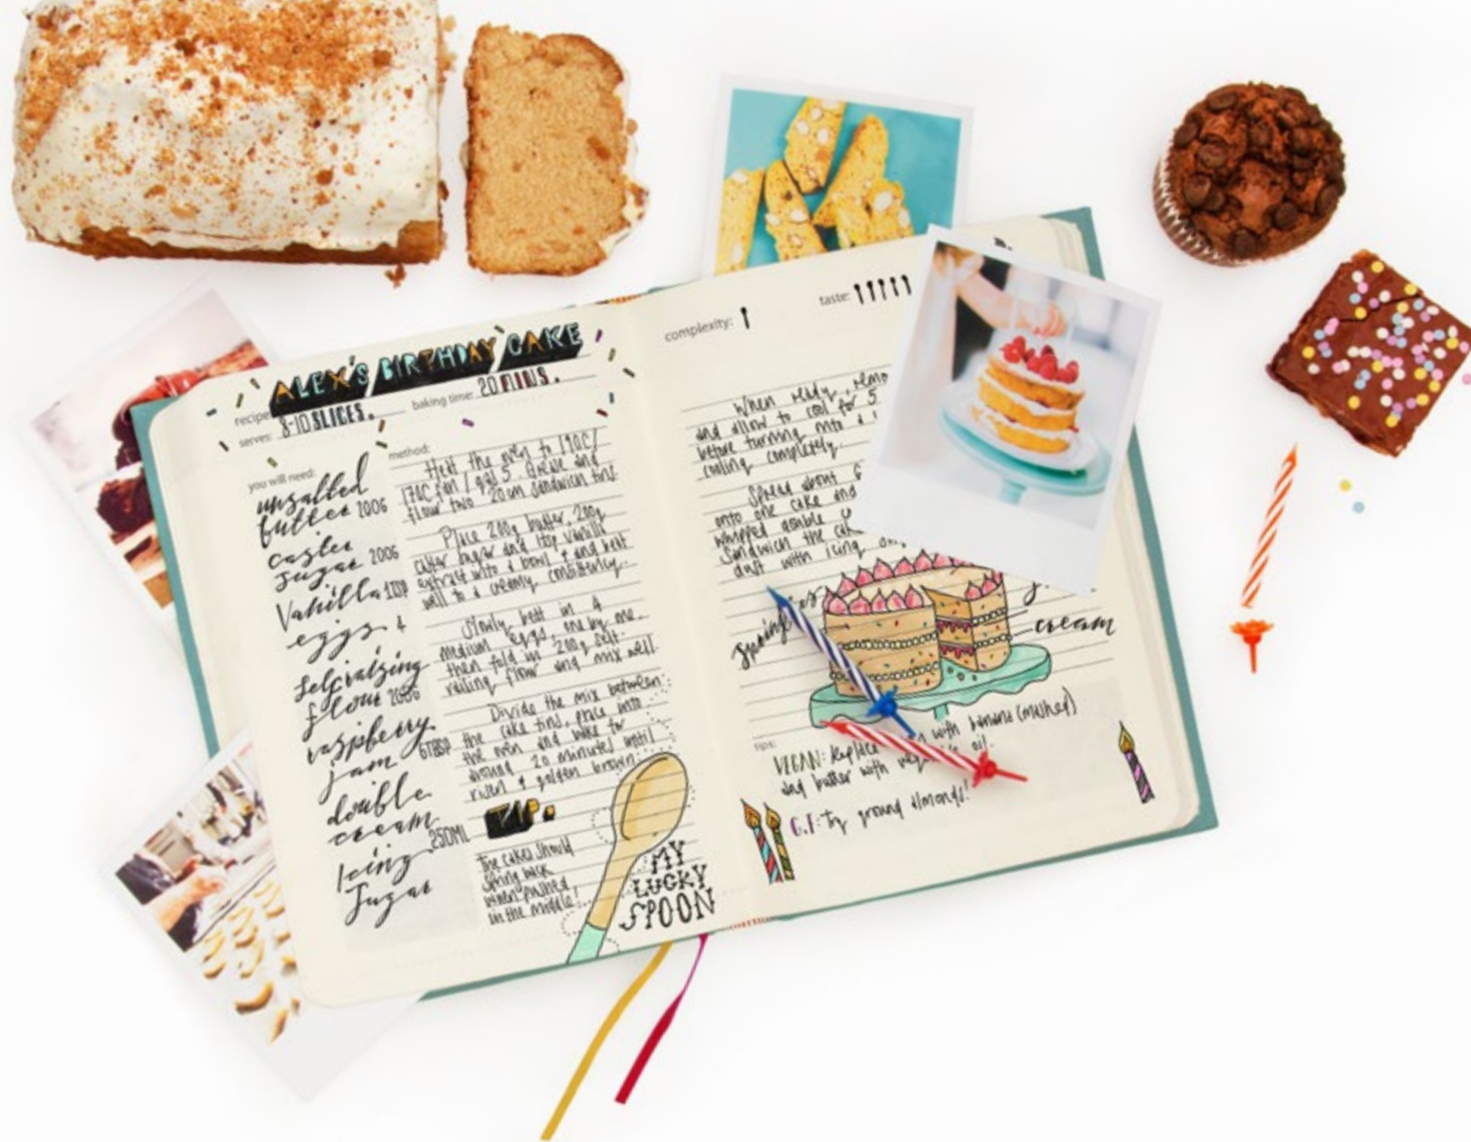 ALEX'S BIRTHDAY CAKE
recipe:
serves: 8-10 SLICES. baking time: 20 MINS.
you will need:
unsalted
butter 200G
caster
sugar 200G
Vanilla 1TSP
eggs 4
Self-raising
flour 200G
raspberry
jam 6TBSP
double
cream 250ML
Icing
Sugar
method:
Heat the oven to 190C/
170C fan / gas 5. Grease and
flour two 20cm sandwich tins.
Place 200g butter, 200g
caster sugar and 1tsp vanilla
extract into a bowl and beat
well to a creamy consistency.
Slowly beat in 4
medium eggs, one by one.
then fold in 200g self-
raising flour and mix well.
Divide the mix between
the cake tins, place into
the oven and bake for
around 20 minutes until
risen & golden brown.
TIP:
The cakes should
spring back
when pushed
in the middle!
MY
LUCKY
SPOON
complexity: taste:
When ready, remo
and allow to cool for 5
before turning into a
cooling completely.
Spread about 6
onto one cake and
whipped double
Sandwich the cak
dust with icing
cream
tips:
VEGAN: Replace with banana (mashed)
and butter with oil.
G.F: Try ground almonds!